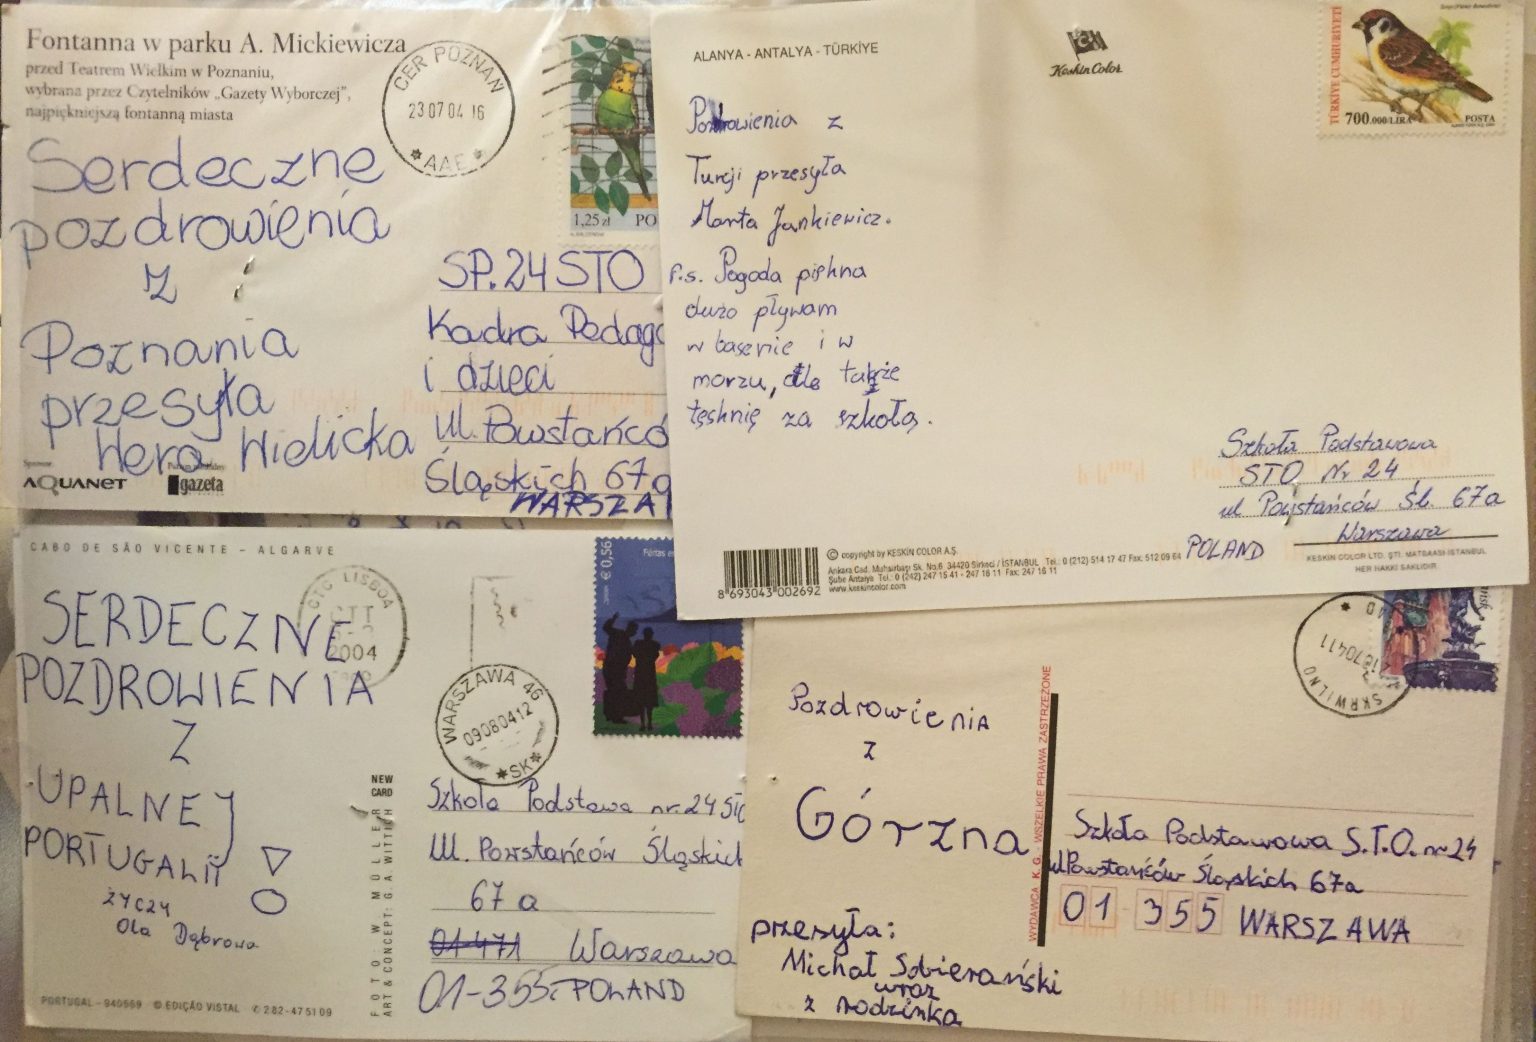 Fontanna w parku A. Mickiewicza
przed Teatrem Wielkim w Poznaniu,
wybrana przez Czytelników „Gazety Wyborczej”,
najpiękniejszą fontanną miasta
CER POZNAŃ
23 07 04 16
* AAE *
1,25 zł PO
Serdeczne
pozdrowienia
z
Poznania
przesyła
Wera Wielicka
Sponsor:
AQUANET
gazeta
SP. 24 STO
Kadra Pedago
i dzieci
ul. Powstańcó
Śląskich 67a
WARSZA
ALANYA - ANTALYA - TÜRKİYE
Keskin Color
TÜRKİYE CUMHURİYETİ
700.000/LİRA POSTA
Pozdrowienia z
Turcji przesyła
Marta Jankiewicz.
P.s. Pogoda piękna
dużo pływam
w basenie i w
morzu, ale także
tęsknię za szkołą.
Szkoła Podstawowa
STO Nr 24
ul Powstańców Śl. 67a
Warszawa
POLAND
8 693043 002692
© copyright by KESKİN COLOR A.Ş.
Ankara Cad. Muhsirbaşı Sk. No.6 34420 Sirkeci / İSTANBUL Tel.: 0 (212) 514 17 47 Fax: 512 09 64
Şube Antalya Tel.: 0 (242) 247 15 41 - 247 16 11 Fax: 247 16 11
www.keskincolor.com
KESKİN COLOR LTD. ŞTİ. MATBAASI-İSTANBUL
HER HAKKI SAKLIDIR
CABO DE SÃO VICENTE – ALGARVE
CTC LISBOA
2004
WARSZAWA 46
09080412
*SK*
€ 0,56
SERDECZNE
POZDROWIENIA
Z
UPALNEJ
PORTUGALII
ŻYCZY
Ola Dąbrowa
NEW
CARD
FOTO: W. MÜLLER
ART & CONCEPT: G.A. WITTICH
Szkoła Podstawa nr. 24 STO
Ul. Powstańców Śląskich
67 a
01-471 Warszawa
01-355 POLAND
PORTUGAL - 940569 © EDIÇÃO VISTAL ✆ 282-47 51 09
SKRWILNO
Pozdrowienia
z
Górzna
przesyła:
Michał Sobierański
wraz
z rodzinka
WYDAWCA K. G. - WSZELKIE PRAWA ZASTRZEŻONE
Szkoła Podstawowa S.T.O. nr 24
ul Powstańców Śląskich 67a
01 355 WARSZAWA